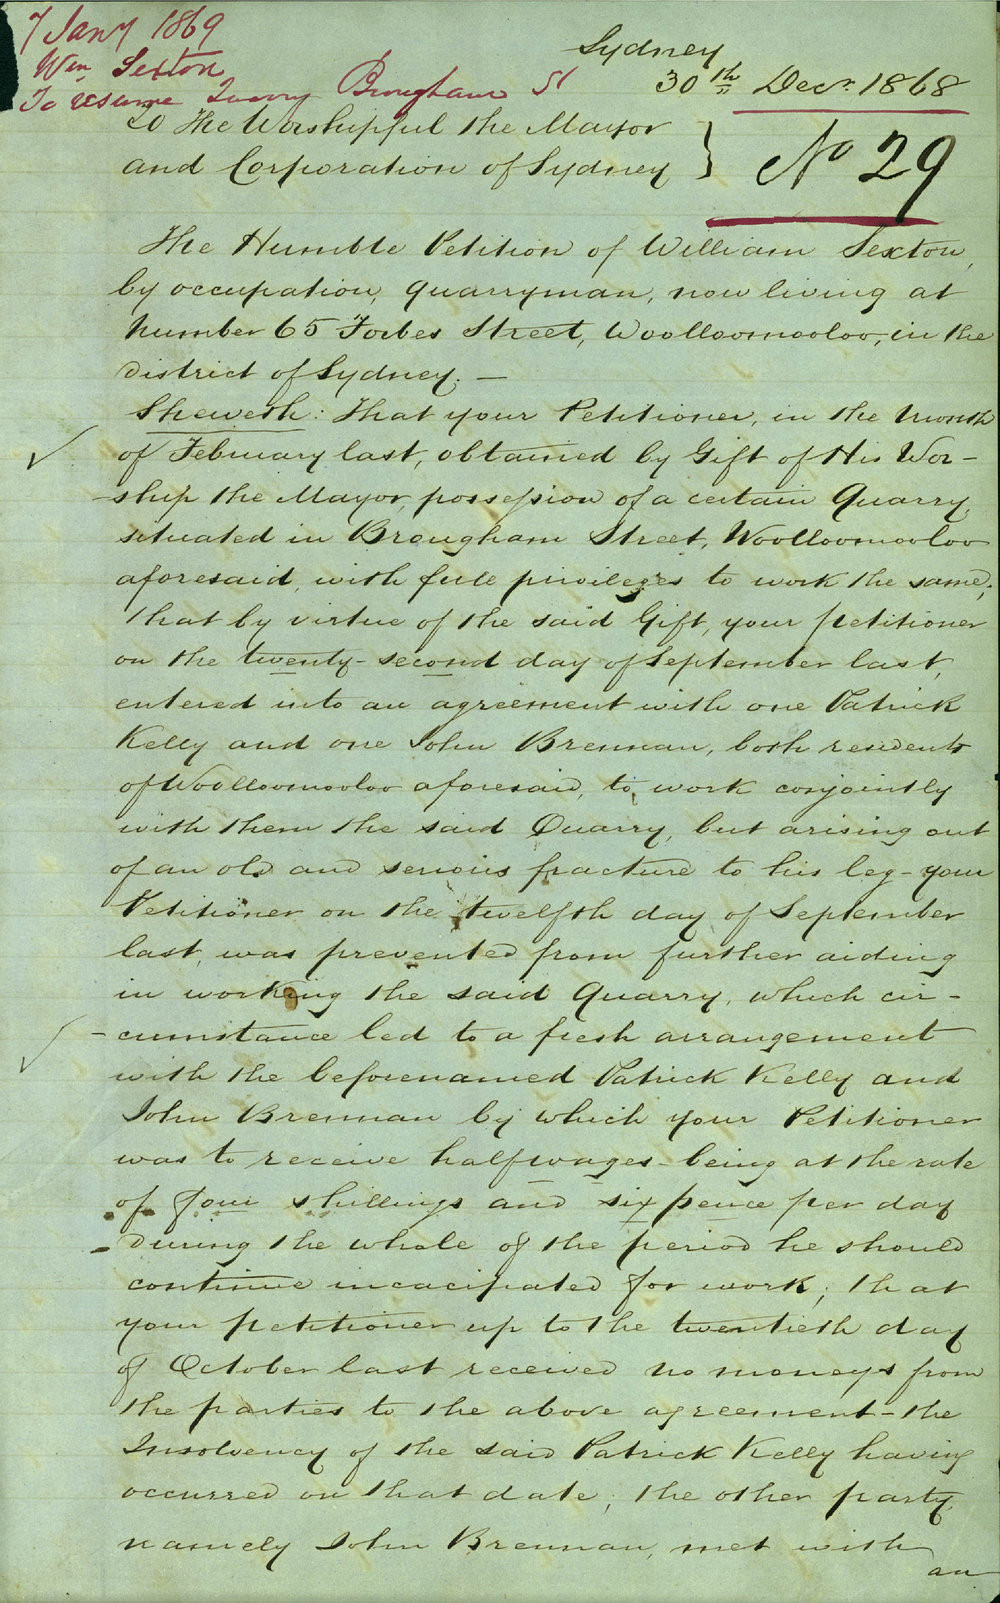 7 Jany 1869
Wm Sexton
To resume Quarry Brougham St
Sydney
30th Decr. 1868
No 29
To The Worshipful the Mayor
and Corporation of Sydney
The Humble Petition of William Sexton,
by occupation, quarryman, now living at
Number 65 Forbes Street, Woolloomooloo, in the
district of Sydney. —
Sheweth: That your Petitioner, in the Month
of February last, obtained by Gift of His Wor-
-ship the Mayor, possession of a certain Quarry,
situated in Brougham Street, Woolloomooloo
aforesaid, with full privileges to work the same;
that by virtue of the said Gift, your petitioner
on the twenty-second day of September last,
entered into an agreement with one Patrick
Kelly and one John Brennan, both residents
of Woolloomooloo aforesaid, to work conjointly
with them the said Quarry, but arising out
of an old and serious fracture to his leg - your
Petitioner on the twelfth day of September
last, was prevented from further aiding
in working the said Quarry, which cir-
-cumstance led to a fresh arrangement
with the beforenamed Patrick Kelly and
John Brennan by which your Petitioner
was to receive half wages - being at the rate
of four shillings and six pence per day
during the whole of the period he should
continue incacipated for work; that
your petitioner up to the twentieth day
of October last received no moneys from
the parties to the above agreement - the
Insolvency of the said Patrick Kelly having
occurred on that date; the other party,
namely John Brennan, met with
an